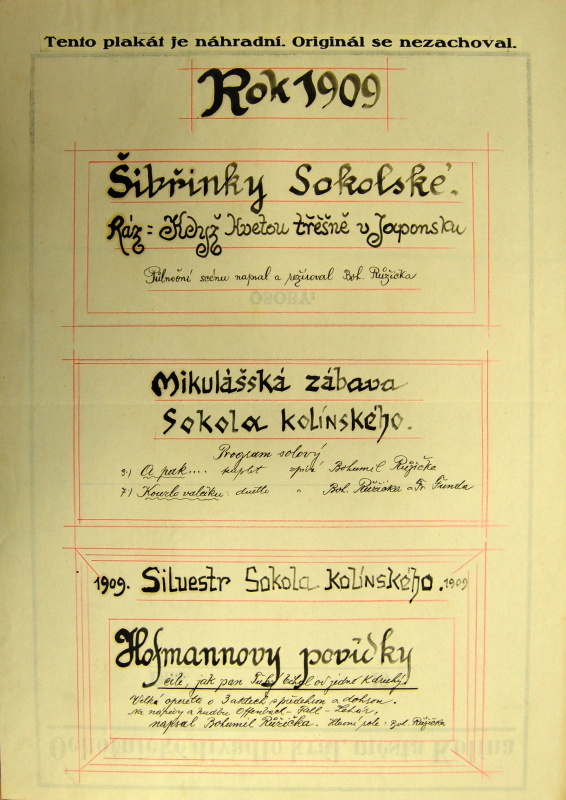 Tento plakát je náhradní. Originál se nezachoval.
Rok 1909
Šibřinky Sokolské.
Ráz = Když kvetou třěšně v Japonsku
Půlnoční scénu napsal a režíroval Boh. Růžička
OSOBY:
Mikulášská zábava
Sokola kolínského.
Program solový
3.) A pak.... kuplet zpívá Bohumil Růžička
7.) Kouzlo valčíku: duetto " Boh. Růžička a Fr. Funda
1909. Silvestr Sokola kolínského. 1909
Hofmannovy povídky
čili, jak pan běhal od jedné k druhý.
Velká opereta o 3 aktech s předehrou a dohrou.
Na nápěvy a hudbu Offenbach - Fall - Lehár,
napsal Bohumil Růžička. Hlavní role: Boh. Růžička
Ochotnické divadlo král. města Kolína